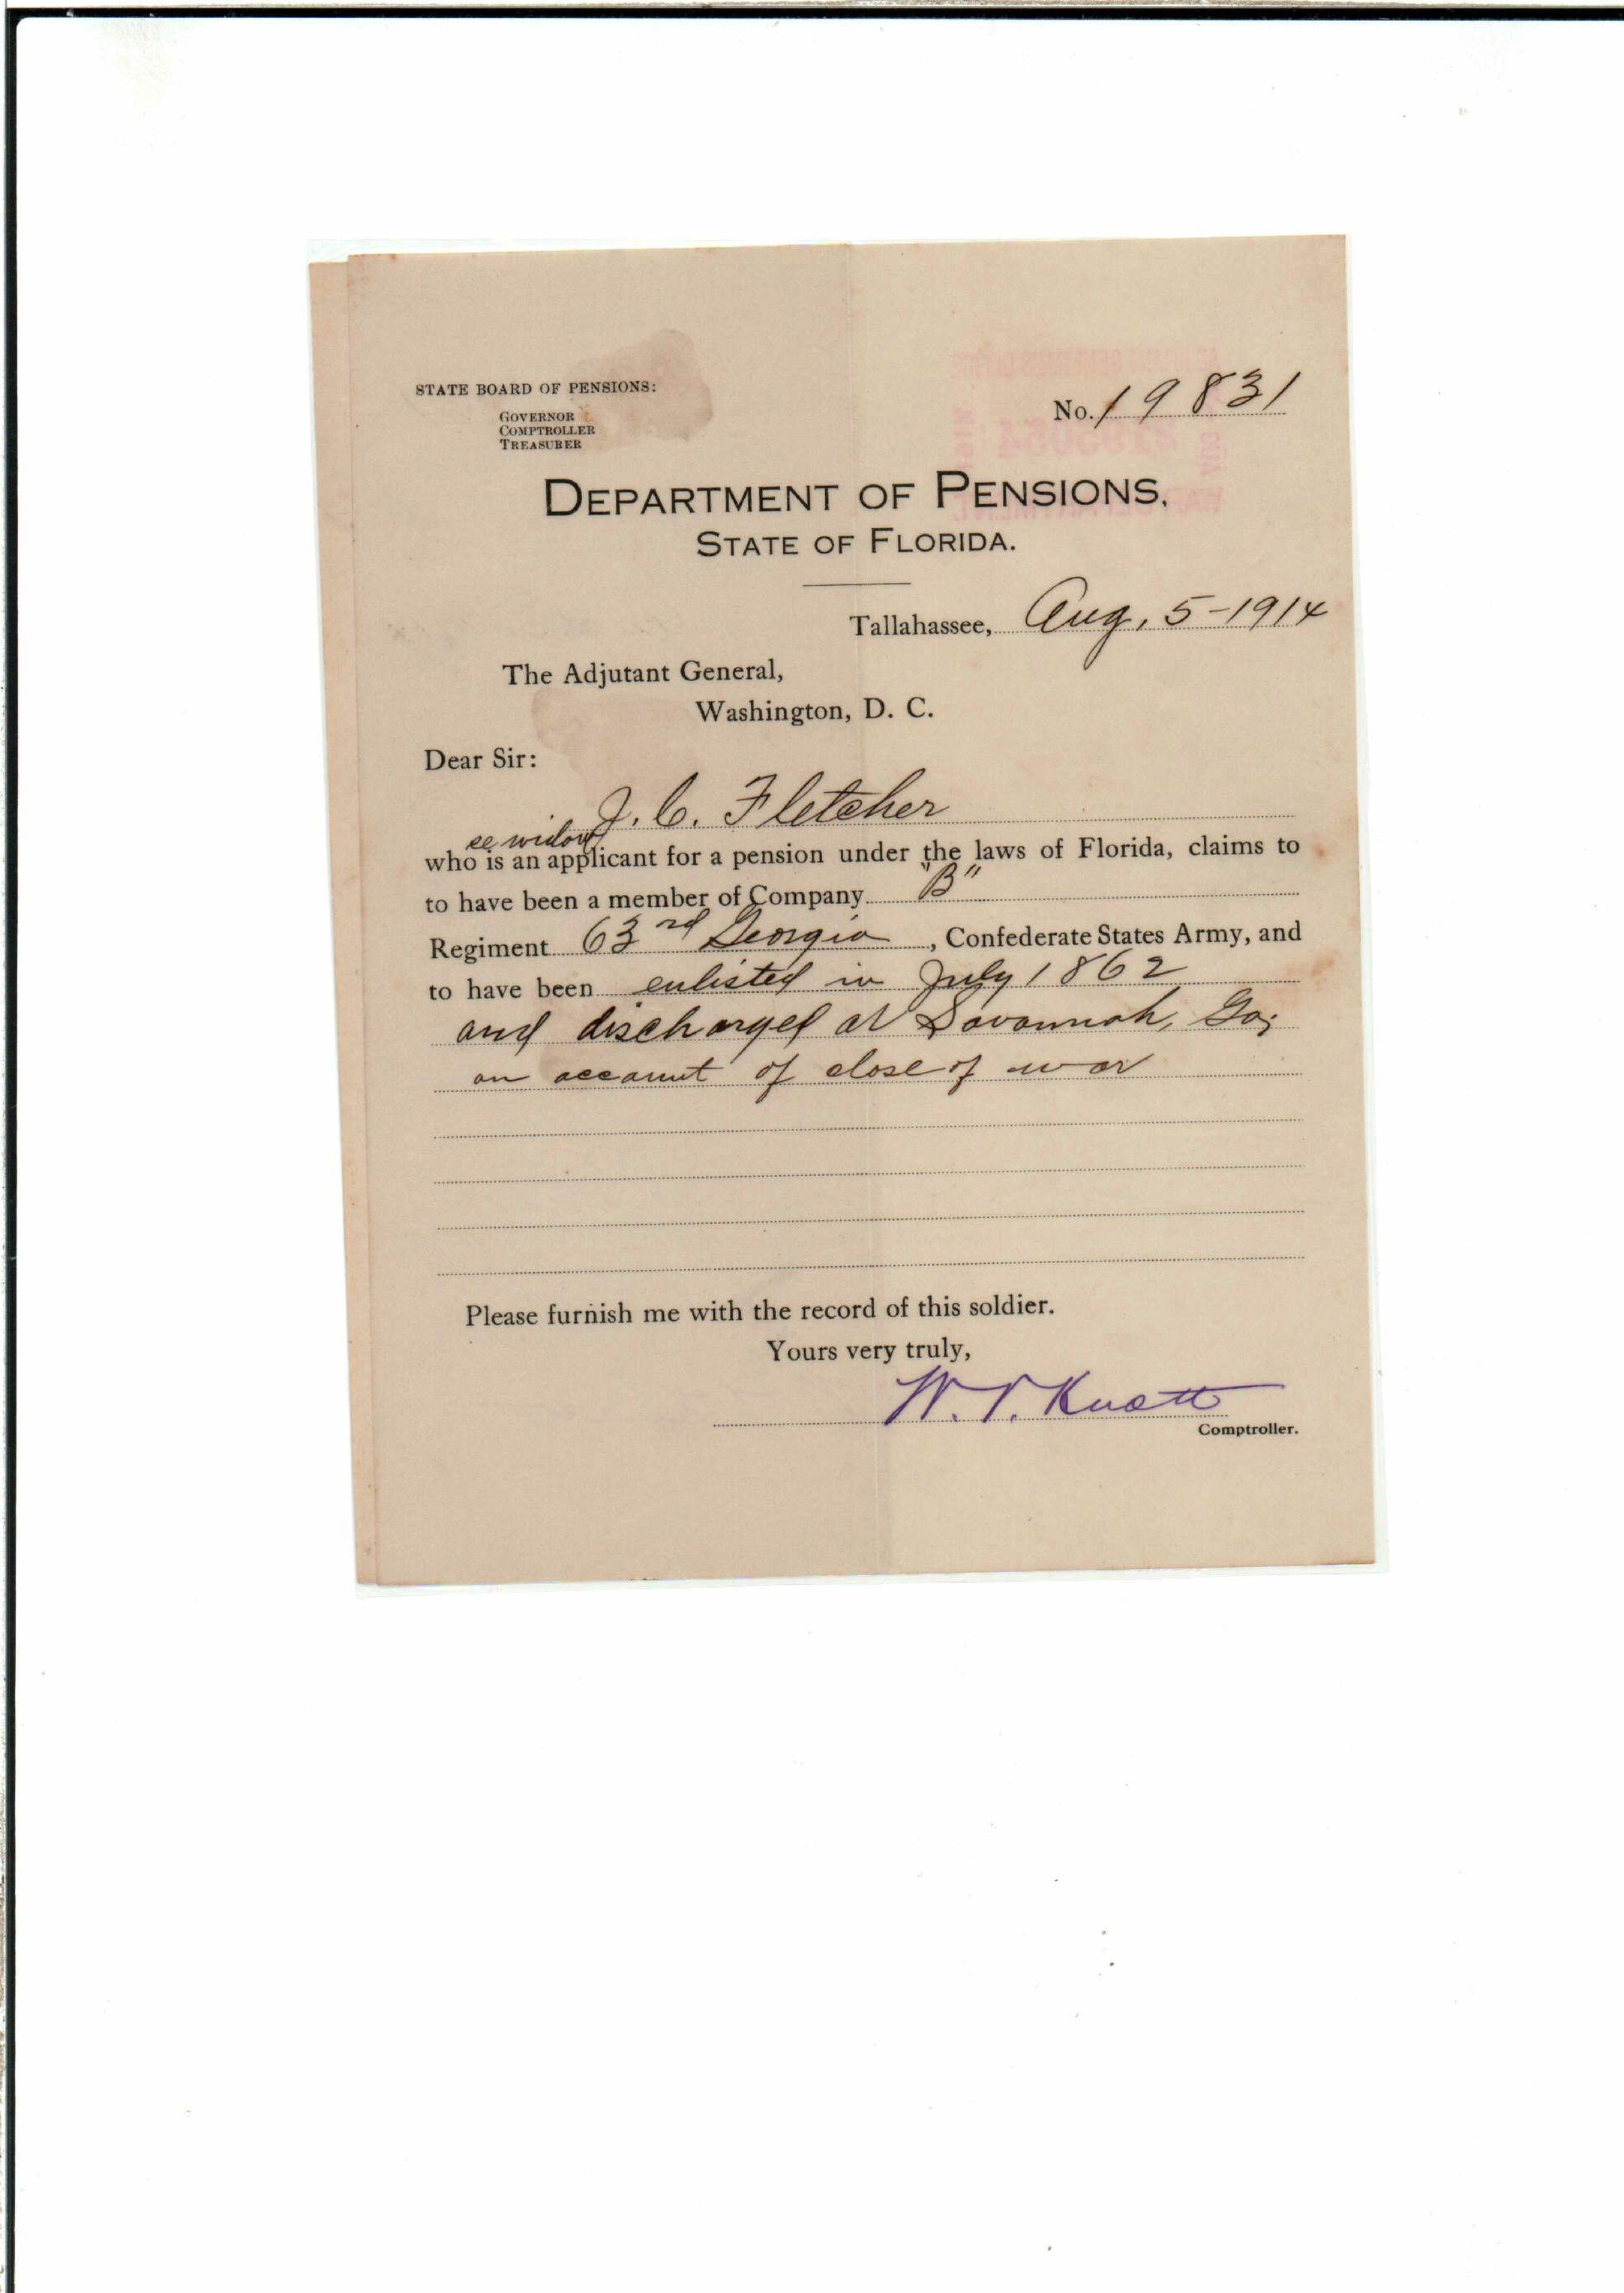 STATE BOARD OF PENSIONS:
GOVERNOR
COMPTROLLER
TREASURER
No. 19831
DEPARTMENT OF PENSIONS,
STATE OF FLORIDA.
Tallahassee, Aug, 5-1914
The Adjutant General,
Washington, D. C.
Dear Sir:
J. C. Fletcher
se widow
who is an applicant for a pension under the laws of Florida, claims to
to have been a member of Company "B"
Regiment 63rd Georgia, Confederate States Army, and
to have been enlisted in July 1862
and discharged at Savannah, Ga;
on account of close of war
Please furnish me with the record of this soldier.
Yours very truly,
W. V. Knott
Comptroller.